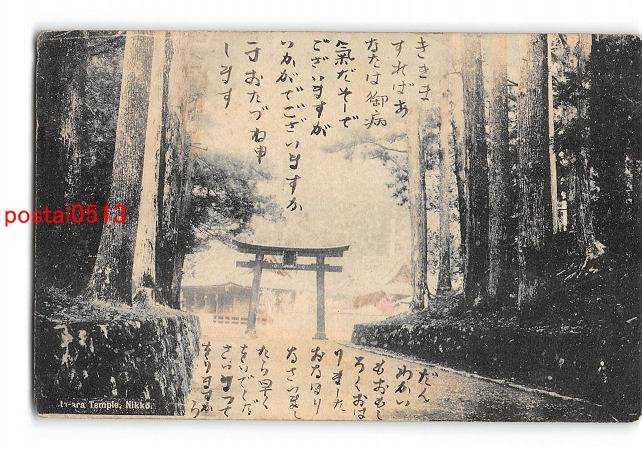 ききま
すればあ
なたは御病
氣だそーで
ございますが
いかがでございますか
す おたづね申
します
だん
わかい
おもしろ
ろくおは
りました
おなほり
なさいまし
たら早く
をいでくだ
さいまつて
をりますから
ta-ara Temple, Nikko.
postal0513